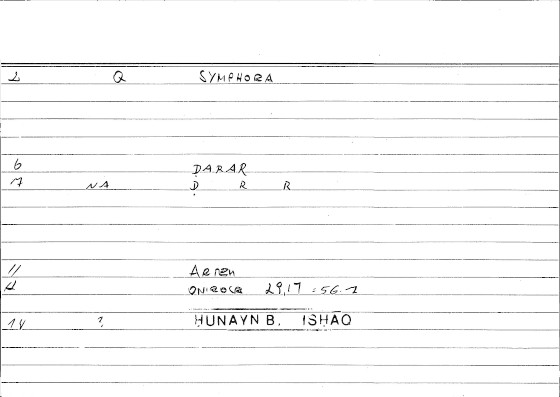 1 Q SYMPHORA
6 ḌARAR
7 NA Ḍ R R
11 Artem
12 ONIROCR 29,17 = 56.1
14 ? HUNAYN B. ISHĀQ